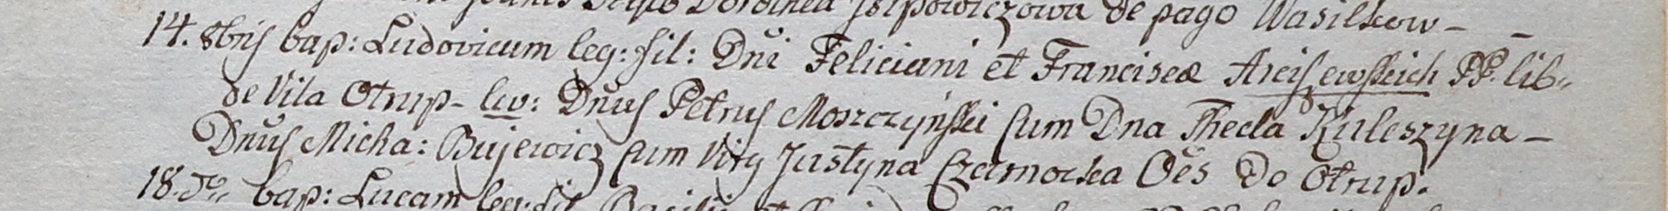 Dorothea Jozipowiczowa de pago Wasilkow -
14. 8bris bap: Ludovicum leg: fil: Dni Feliciani et Franciscæ Arciszewskich PP. lib-
de Vila Otrup - lw: Dnus Petrus Moszczyński cum Dna Thecla Kuleszyna -
Dnus Micha: Bujewicz cum Virg Justyna Czarnocka Oēs De Otrup.
18. bap: Lucam leg: fil